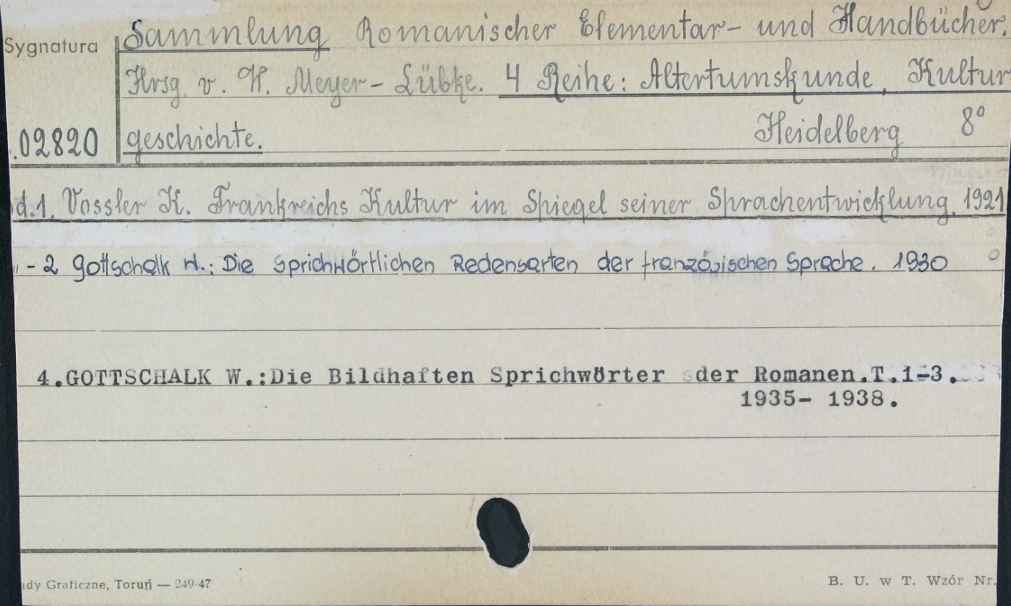 Sygnatura
Sammlung Romanischer Elementar- und Handbücher.
Hrsg. v. W. Meyer-Lübke. 4 Reihe: Altertumskunde, Kultur
.02820 geschichte. Heidelberg 8°
d.1. Vossler K. Frankreichs Kultur im Spiegel seiner Sprachentwicklung. 1921
" - 2 Gottschalk W.: Die Sprichwörtlichen Redensarten der französischen Sprache. 1930
4.GOTTSCHALK W.:Die Bildhaften Sprichwörter der Romanen.T.1-3.
1935- 1938.
dy Graficzne, Toruń — 249-47
B. U. w T. Wzór Nr.